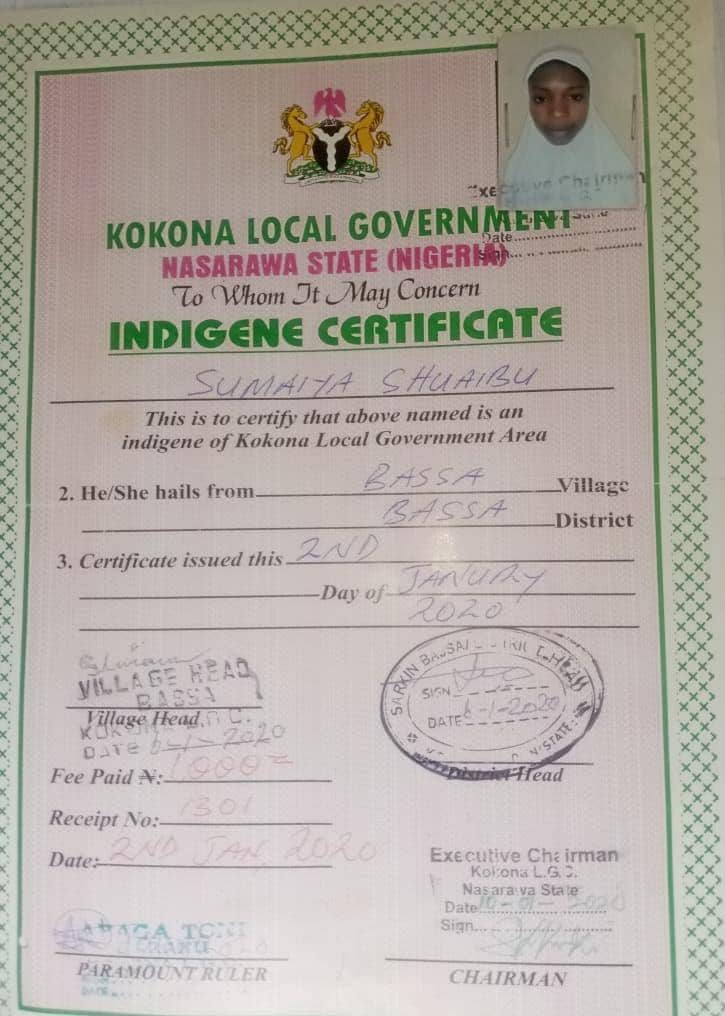 Executive Chairman
KOKONA LOCAL GOVERNMENT
Date
Sign
NASARAWA STATE (NIGERIA)
To Whom It May Concern
INDIGENE CERTIFICATE
SUMAIYA SHUAIBU
This is to certify that above named is an
indigene of Kokona Local Government Area
2. He/She hails from BASSA Village
BASSA District
3. Certificate issued this 2ND
Day of JANURY
2020
VILLAGE HEAD
BASSA
Village Head
DATE 6-1-2020
SARKIN BASSA DISTRICT HEAD
SIGN
DATE 6-1-2020
District Head
Fee Paid ₦: 1,000=
Receipt No: 1301
Date: 2ND JAN, 2020
Executive Chairman
Kokona L.G.C.
Nasarawa State
Date 10-01-2020
Sign
TONI
PARAMOUNT RULER
CHAIRMAN